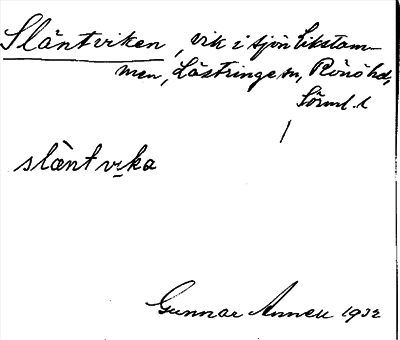 Släntviken, vik i sjön Likstam-
men, Lästringe sn, Rönö hd,
Sörml. l
släntvika
Gunnar Annell 1932